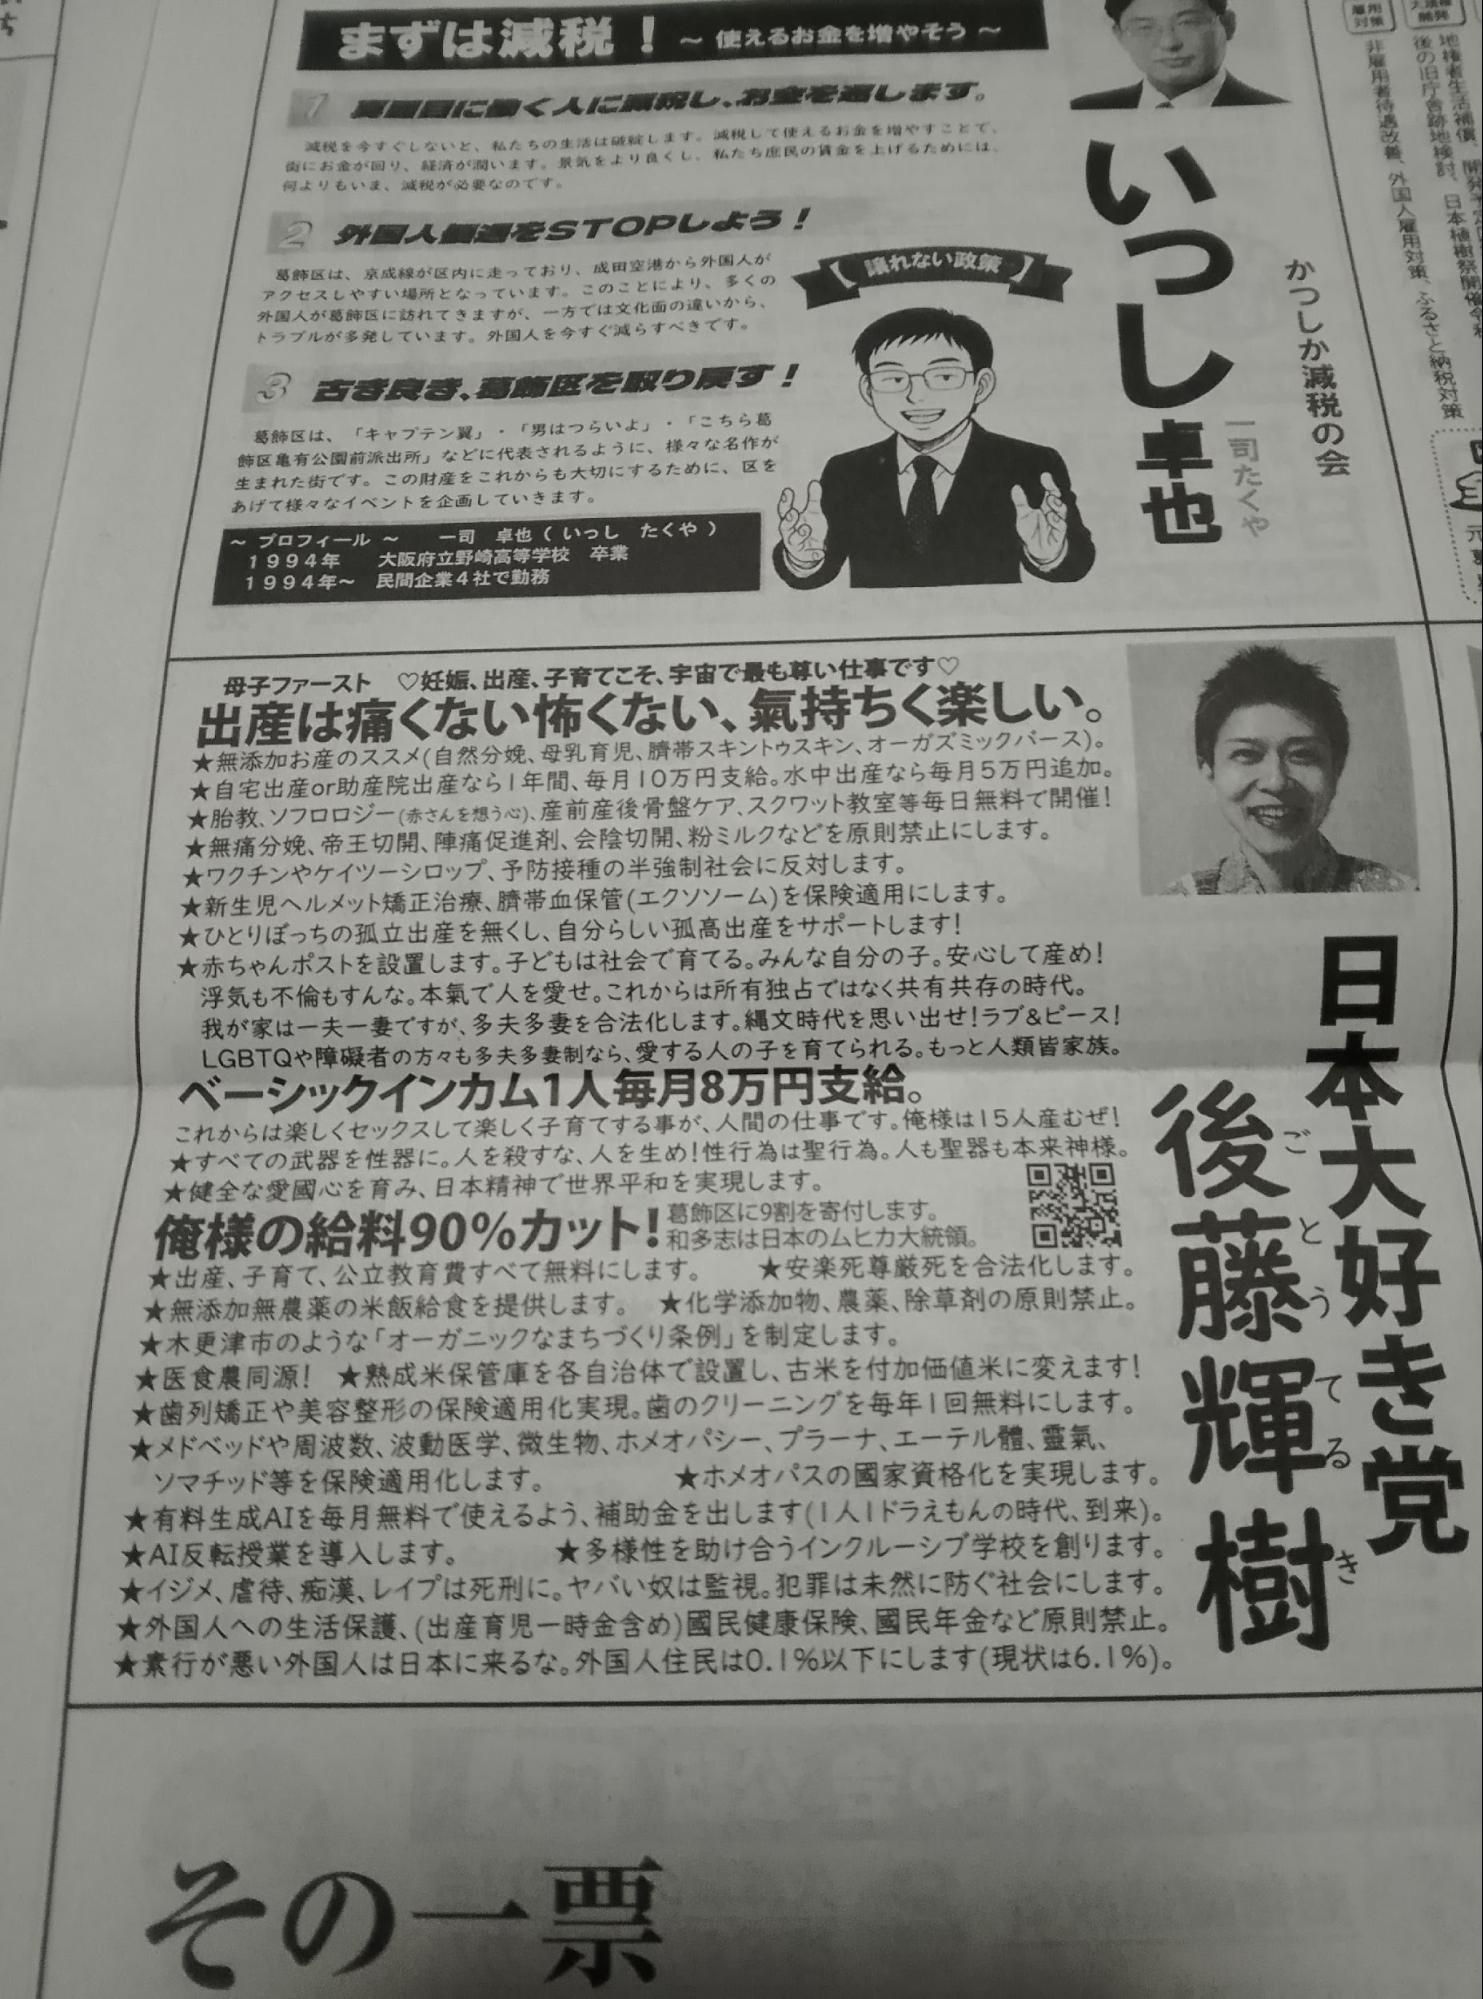 まずは減税！ ～ 使えるお金を増やそう ～
1 真面目に働く人に減税し、お金を返します。
減税を今すぐしないと、私たちの生活は破綻します。減税して使えるお金を増やすことで、
街にお金が回り、経済が潤います。景気をより良くし、私たち庶民の賃金を上げるためには、
何よりもいま、減税が必要なのです。
2 外国人優遇をSTOPしよう！
葛飾区は、京成線が区内に走っており、成田空港から外国人が
アクセスしやすい場所となっています。このことにより、多くの
外国人が葛飾区に訪れてきますが、一方では文化面の違いから、
トラブルが多発しています。外国人を今すぐ減らすべきです。
【譲れない政策】
3 古き良き、葛飾区を取り戻す！
葛飾区は、「キャプテン翼」・「男はつらいよ」・「こちら葛
飾区亀有公園前派出所」などに代表されるように、様々な名作が
生まれた街です。この財産をこれからも大切にするために、区を
あげて様々なイベントを企画していきます。
～ プロフィール ～ 一司 卓也（いっし たくや）
1994年 大阪府立野崎高等学校 卒業
1994年～ 民間企業4社で勤務
いっし卓也
一司たくや
かつしか減税の会
非雇用者待遇改善、外国人雇用対策、ふるさと納税対策
母子ファースト ♡妊娠、出産、子育てこそ、宇宙で最も尊い仕事です♡
出産は痛くない怖くない、氣持ちく楽しい。
★無添加お産のススメ(自然分娩、母乳育児、臍帯スキントゥスキン、オーガズミックバース)。
★自宅出産or助産院出産なら1年間、毎月10万円支給。水中出産なら毎月5万円追加。
★胎教、ソフロロジー(赤さんを想う心)、産前産後骨盤ケア、スクワット教室等毎日無料で開催！
★無痛分娩、帝王切開、陣痛促進剤、会陰切開、粉ミルクなどを原則禁止にします。
★ワクチンやケイツーシロップ、予防接種の半強制社会に反対します。
★新生児ヘルメット矯正治療、臍帯血保管(エクソソーム)を保険適用にします。
★ひとりぼっちの孤立出産を無くし、自分らしい孤高出産をサポートします！
★赤ちゃんポストを設置します。子どもは社会で育てる。みんな自分の子。安心して産め！
浮気も不倫もすんな。本氣で人を愛せ。これからは所有独占ではなく共有共存の時代。
我が家は一夫一妻ですが、多夫多妻を合法化します。縄文時代を思い出せ！ラブ&ピース！
LGBTQや障礙者の方々も多夫多妻制なら、愛する人の子を育てられる。もっと人類皆家族。
ベーシックインカム1人毎月8万円支給。
これからは楽しくセックスして楽しく子育てする事が、人間の仕事です。俺様は15人産むぜ！
★すべての武器を性器に。人を殺すな、人を生め！性行為は聖行為。人も聖器も本来神様。
★健全な愛國心を育み、日本精神で世界平和を実現します。
俺様の給料90%カット！ 葛飾区に9割を寄付します。
和多志は日本のムヒカ大統領。
★出産、子育て、公立教育費すべて無料にします。 ★安楽死尊厳死を合法化します。
★無添加無農薬の米飯給食を提供します。 ★化学添加物、農薬、除草剤の原則禁止。
★木更津市のような「オーガニックなまちづくり条例」を制定します。
★医食農同源！ ★熟成米保管庫を各自治体で設置し、古米を付加価値米に変えます！
★歯列矯正や美容整形の保険適用化実現。歯のクリーニングを毎年1回無料にします。
★メドベッドや周波数、波動医学、微生物、ホメオパシー、プラーナ、エーテル體、靈氣、
ソマチッド等を保険適用化します。 ★ホメオパスの國家資格化を実現します。
★有料生成AIを毎月無料で使えるよう、補助金を出します(1人1ドラえもんの時代、到来)。
★AI反転授業を導入します。 ★多様性を助け合うインクルーシブ学校を創ります。
★イジメ、虐待、痴漢、レイプは死刑に。ヤバい奴は監視。犯罪は未然に防ぐ社会にします。
★外国人への生活保護、(出産育児一時金含め)國民健康保険、國民年金など原則禁止。
★素行が悪い外国人は日本に来るな。外国人住民は0.1%以下にします(現状は6.1%)。
日本大好き党
後藤輝樹
ごとうてるき
その一票